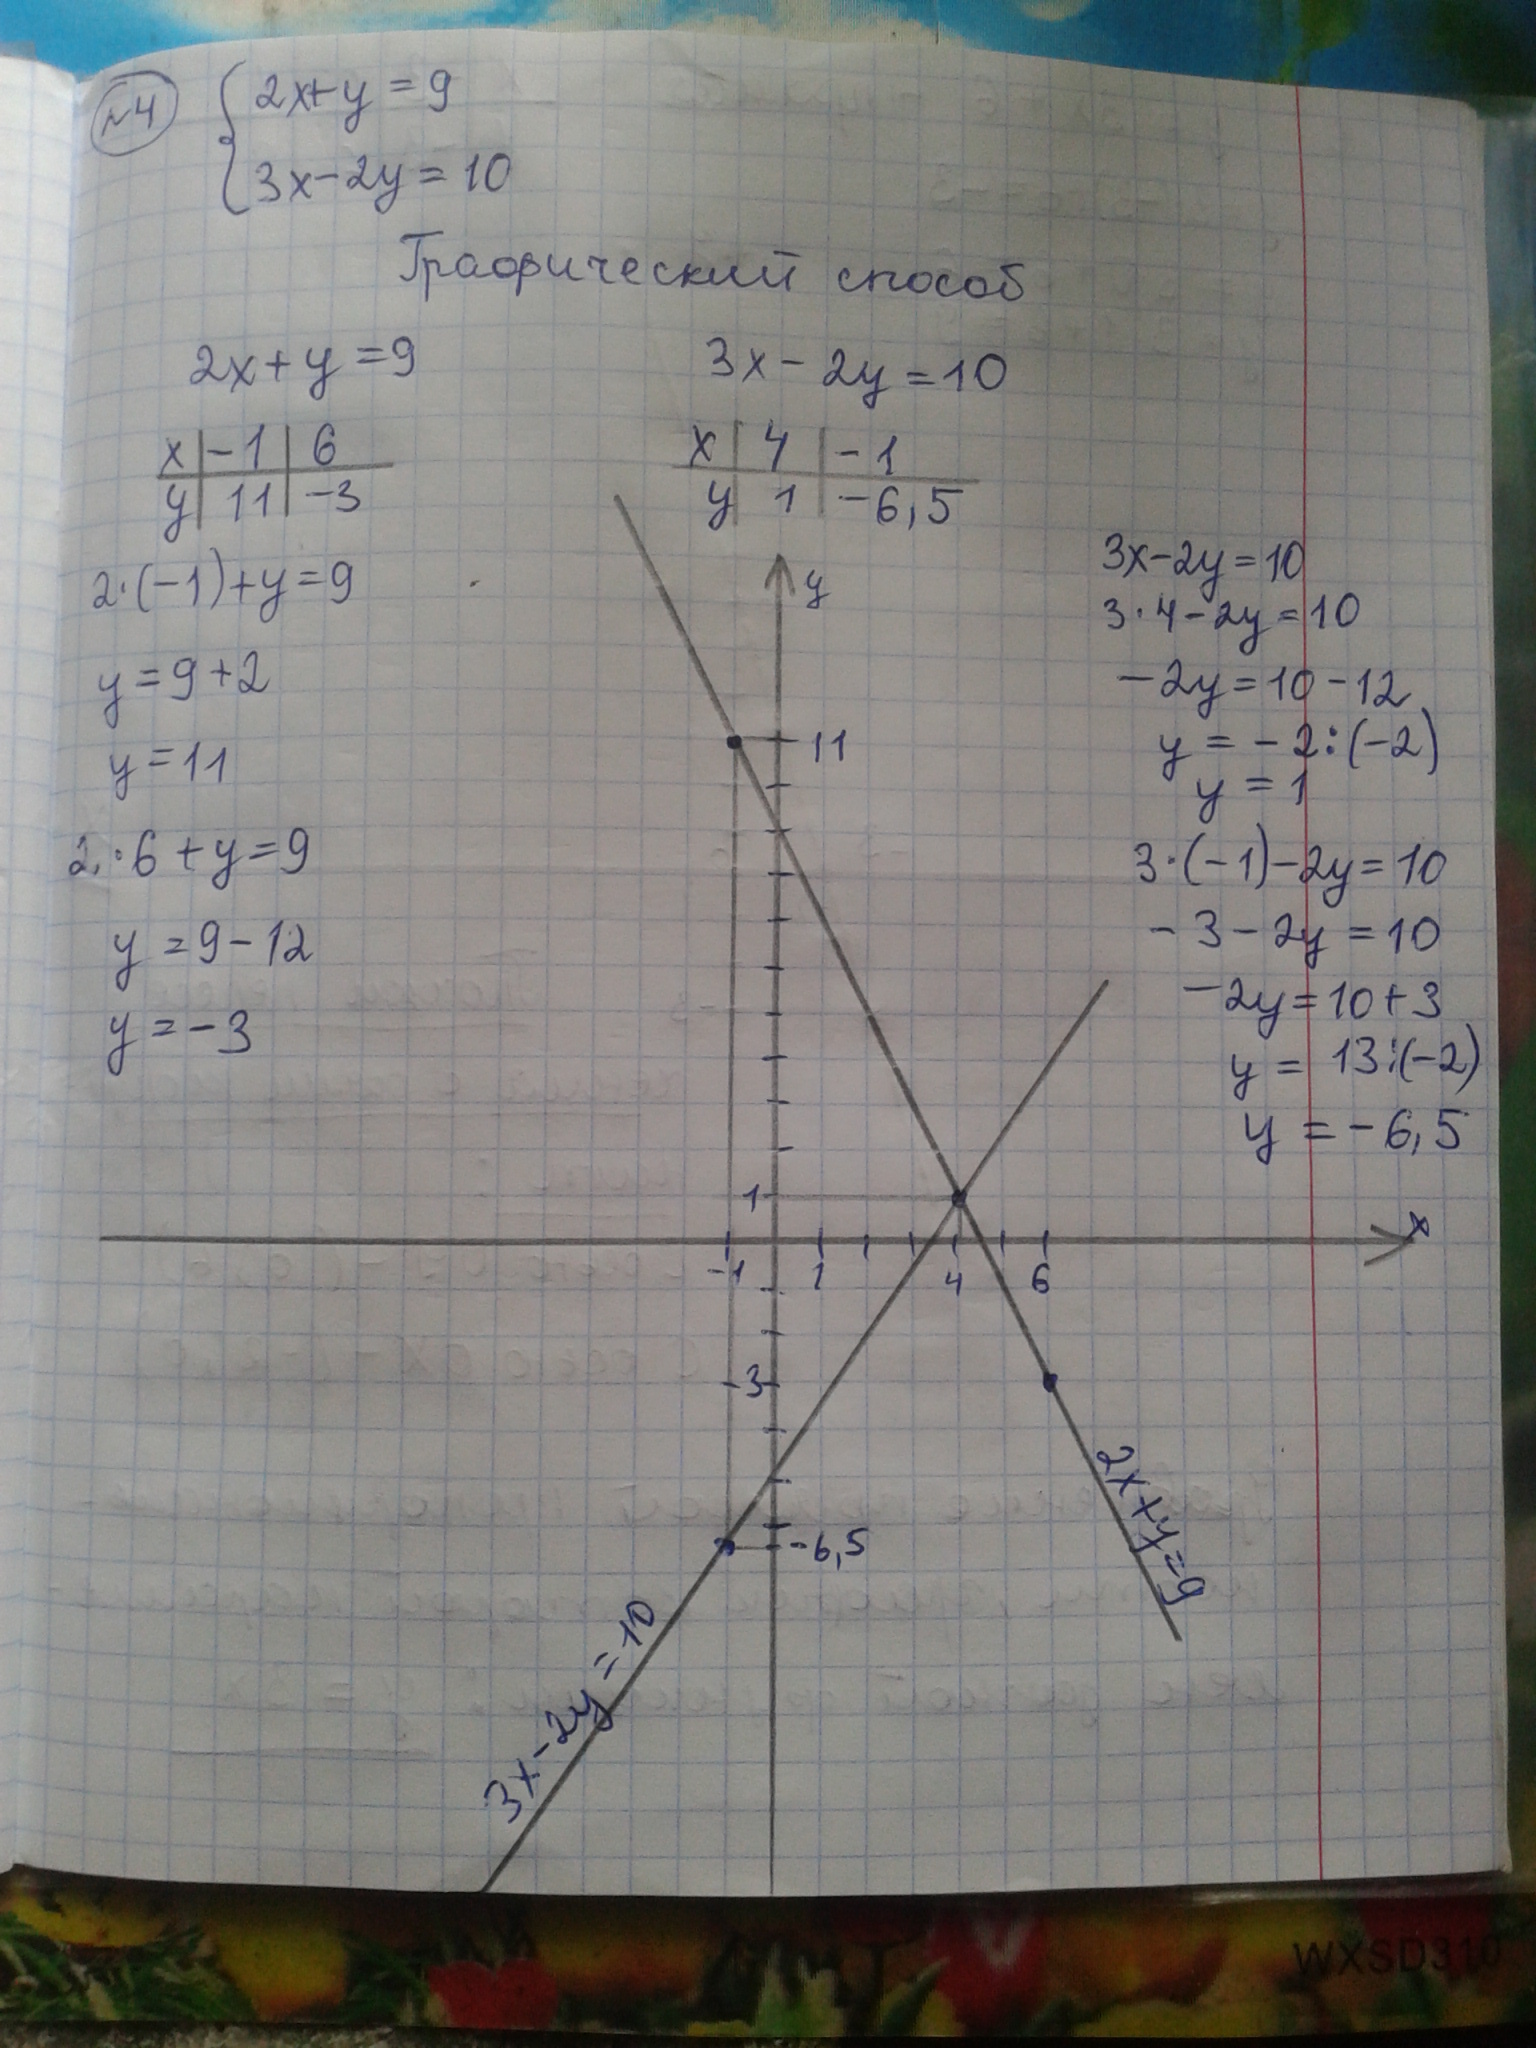 №4
2x+y=9
3x-2y=10
Графический способ
2x+y=9
x | -1 | 6
y | 11 | -3
2·(-1)+y=9
y=9+2
y=11
2·6+y=9
y=9-12
y=-3
3x-2y=10
x | 4 | -1
y | 1 | -6,5
3x-2y=10
3·4-2y=10
-2y=10-12
y=-2:(-2)
y=1
3·(-1)-2y=10
-3-2y=10
-2y=10+3
y=13:(-2)
y=-6,5
y
11
1
x
-1 1 4 6
-3
-6,5
2x+y=9
3x-2y=10
WXSD310